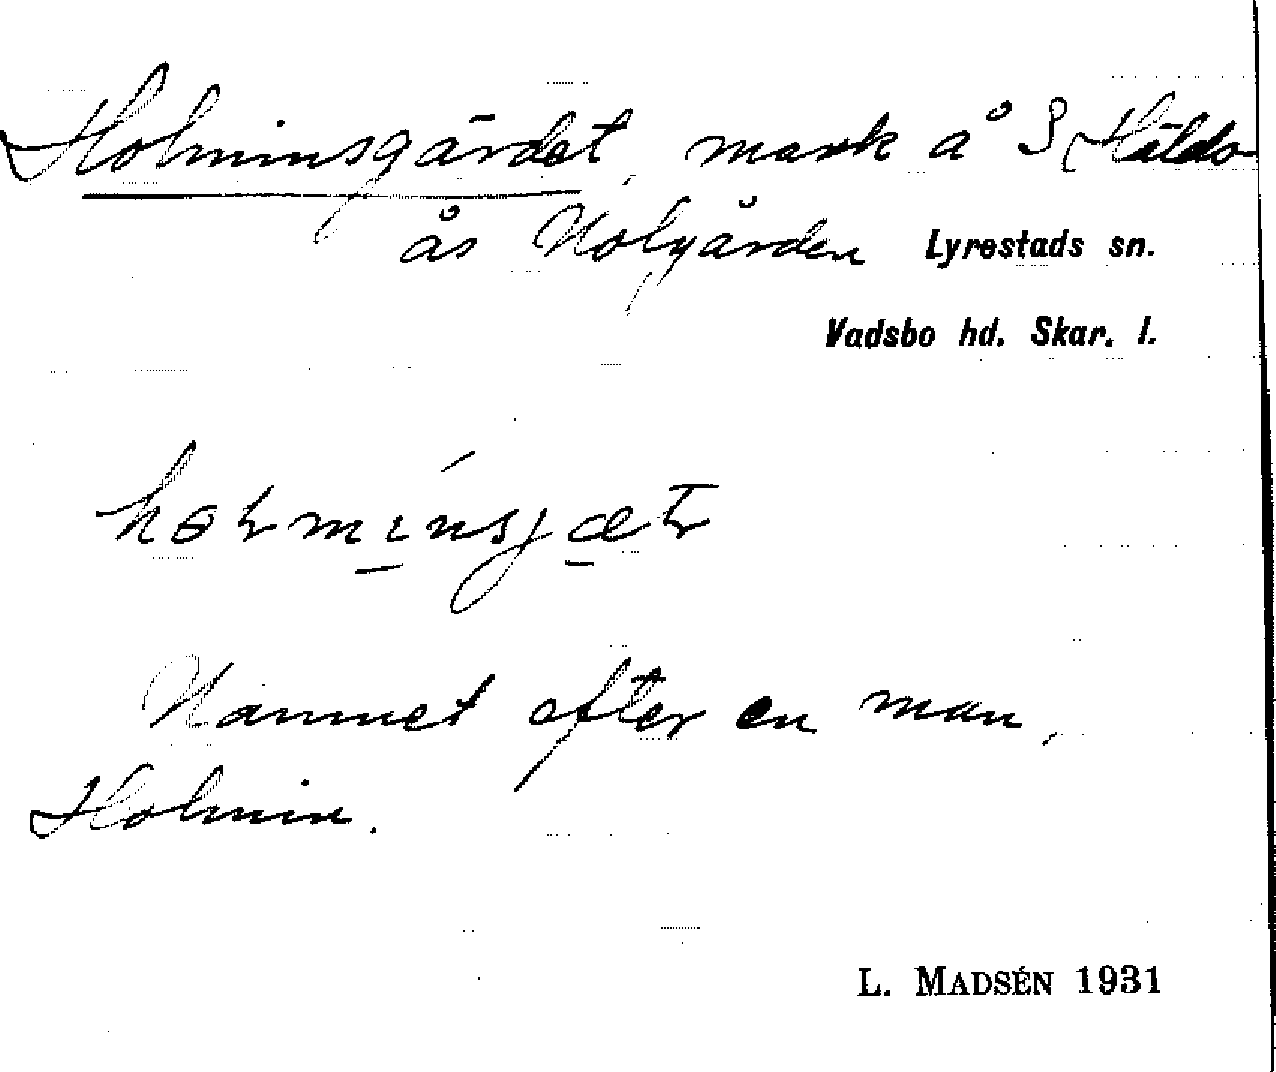 Holminsgärdet, mark å S Hälds-
ås Nolgården Lyrestads sn.
Vadsbo hd. Skar. l.
Namnet efter en man,
Holmin.
L. MADSÉN 1931